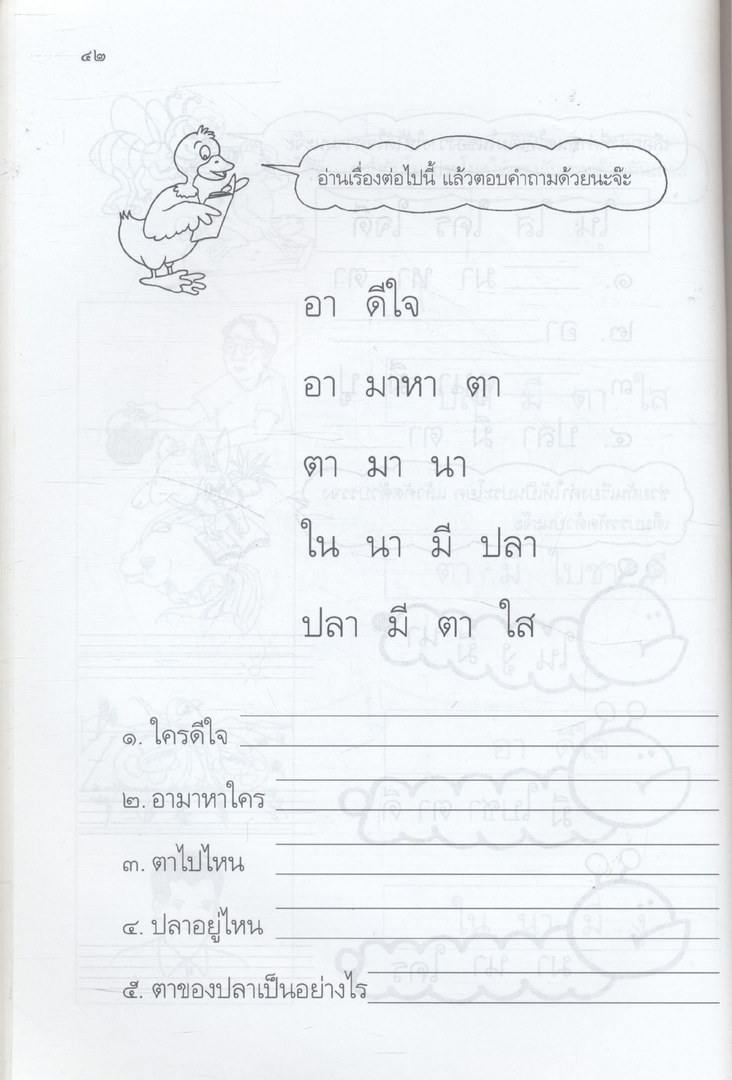 ๔๒
อ่านเรื่องต่อไปนี้ แล้วตอบคำถามด้วยนะจ๊ะ
อา ดีใจ
อา มาหา ตา
ตา มา นา
ใน นา มี ปลา
ปลา มี ตา ใส
๑. ใครดีใจ
๒. อามาหาใคร
๓. ตาไปไหน
๔. ปลาอยู่ไหน
๕. ตาของปลาเป็นอย่างไร